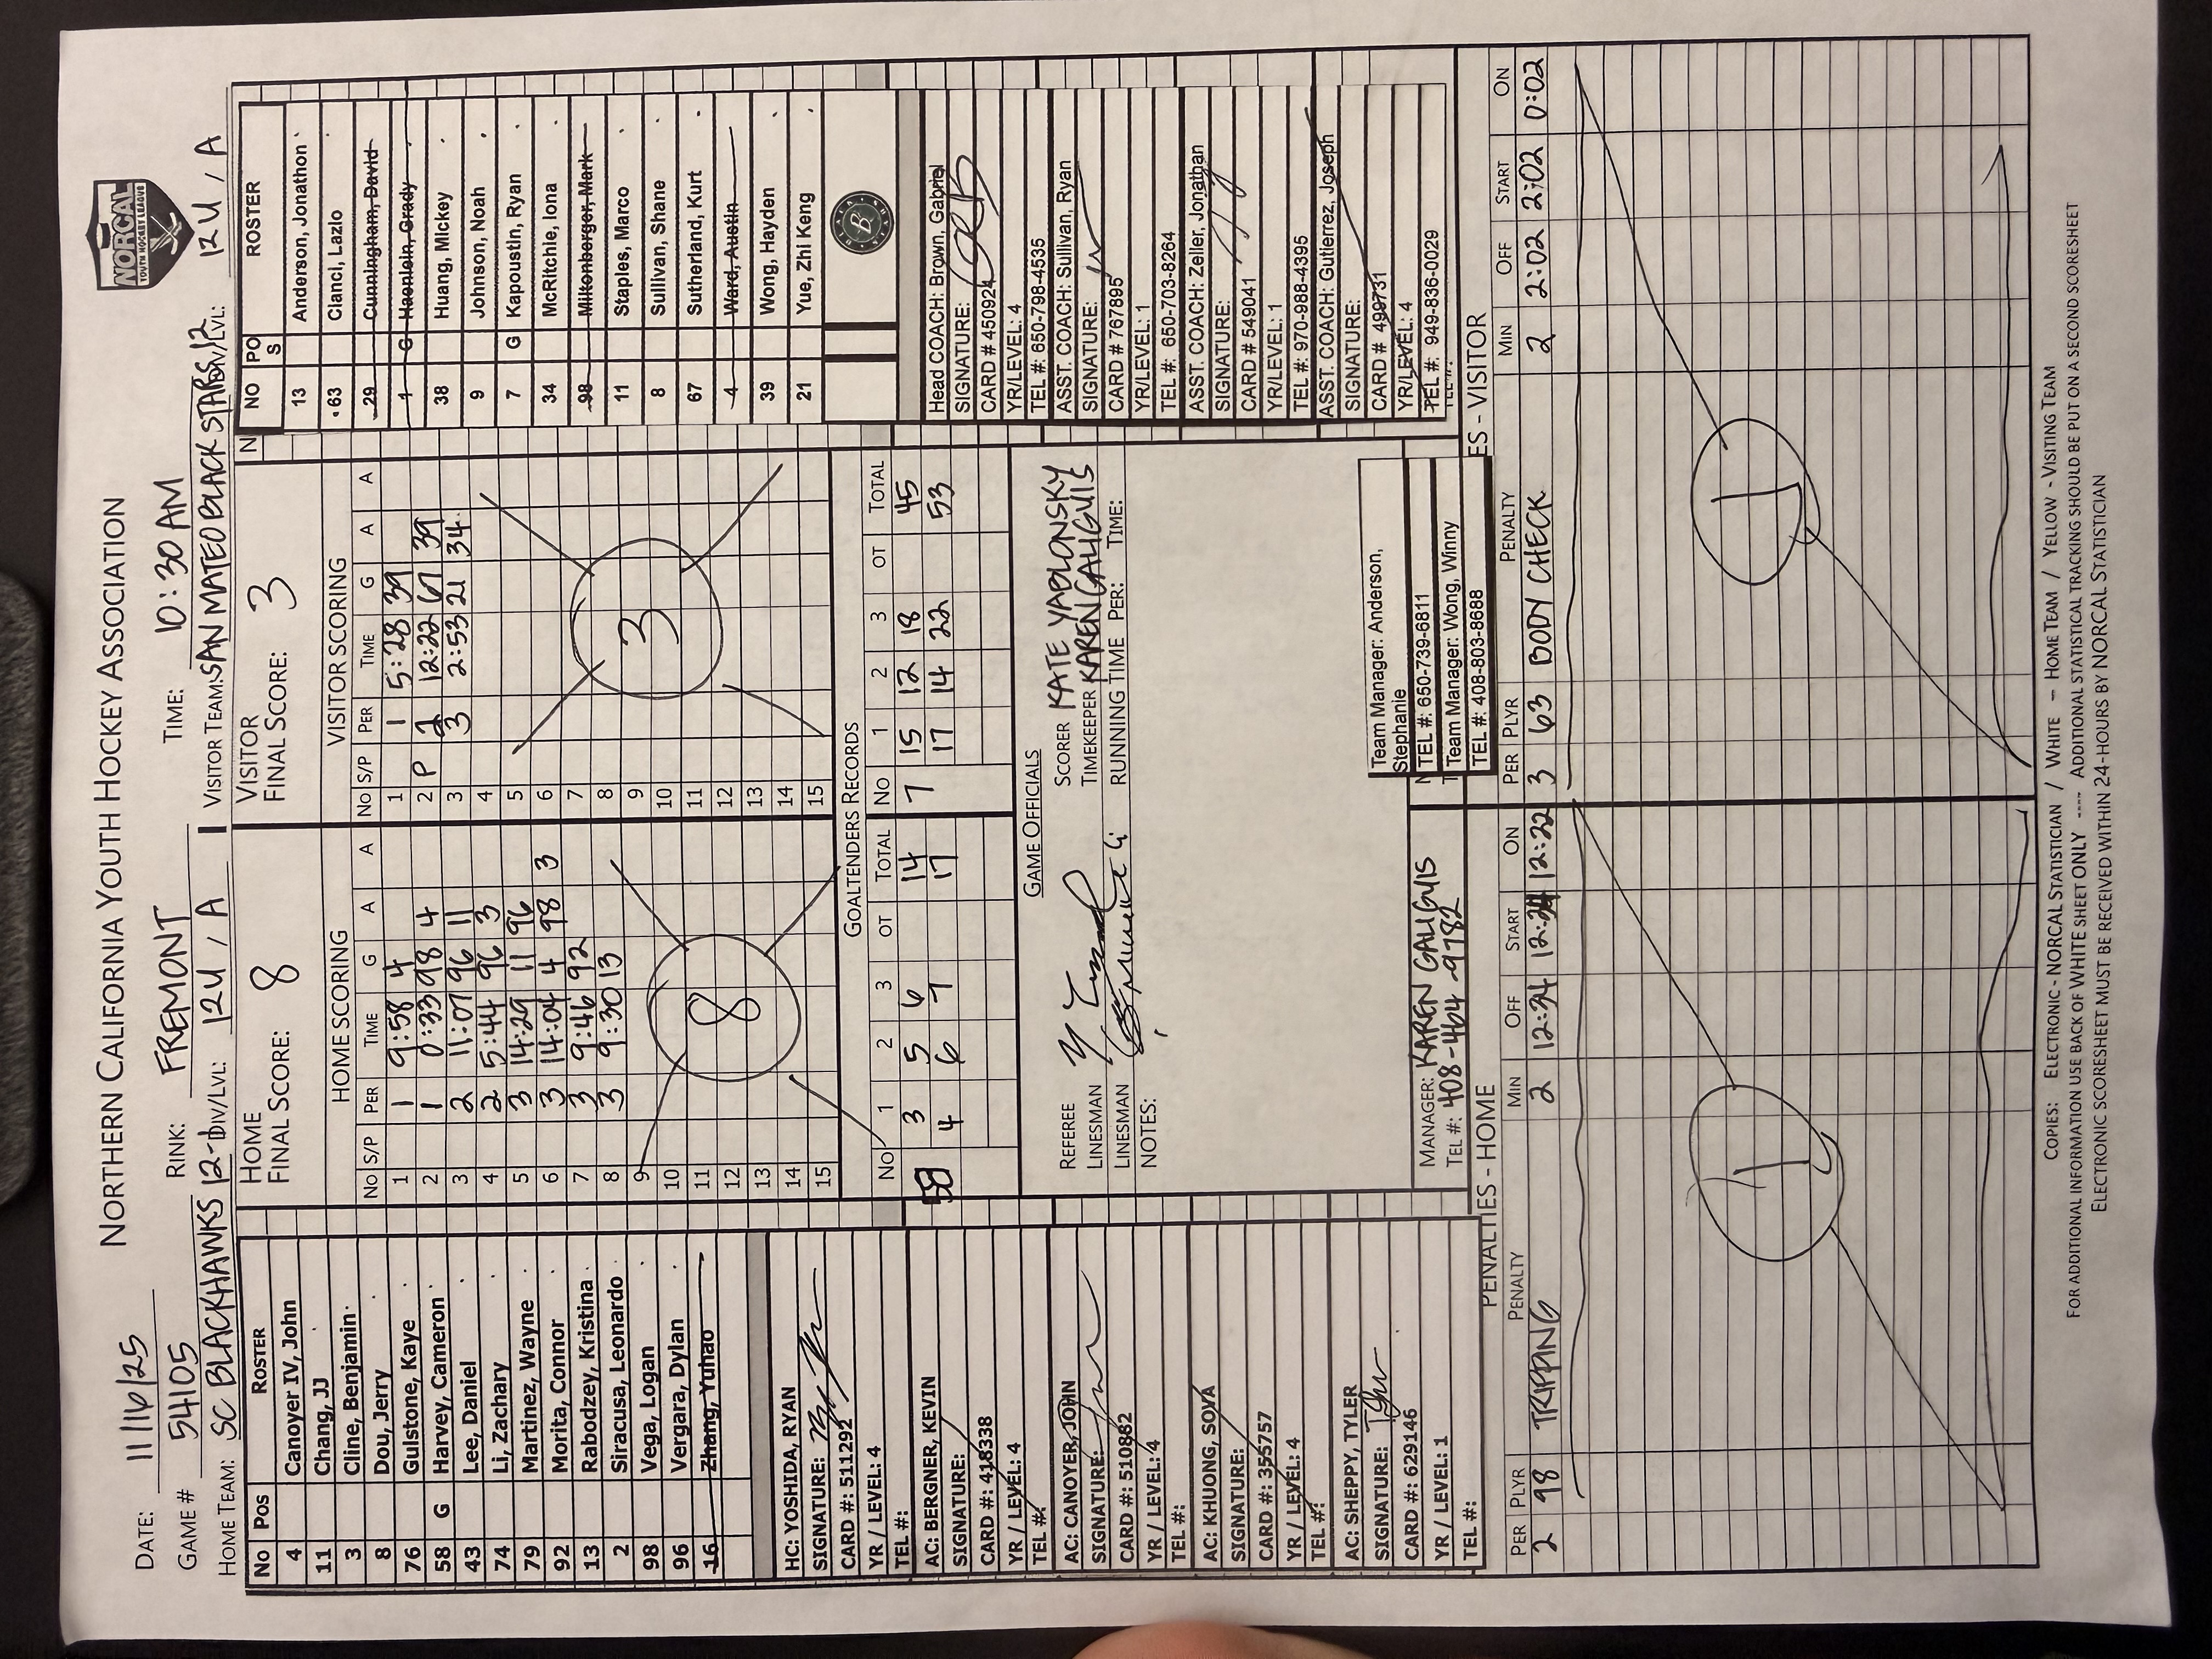 NORTHERN CALIFORNIA YOUTH HOCKEY ASSOCIATION
NORCAL
YOUTH HOCKEY LEAGUE
DATE: 11/16/25
GAME # 54105 RINK: FREMONT TIME: 10:30 AM
HOME TEAM: SC BLACKHAWKS 12-1 DIV/LVL: 12U / A VISITOR TEAM: SAN MATEO BLACK STARS 12 DIV/LVL: 12U / A
No Pos ROSTER
4 Canoyer IV, John
11 Chang, JJ
3 Cline, Benjamin
8 Dou, Jerry
76 Gulstone, Kaye
58 G Harvey, Cameron
43 Lee, Daniel
74 Li, Zachary
79 Martinez, Wayne
92 Morita, Connor
13 Rabodzey, Kristina
2 Siracusa, Leonardo
98 Vega, Logan
96 Vergara, Dylan
16 Zhang, Yuhao
HC: YOSHIDA, RYAN
SIGNATURE:
CARD #: 511292
YR / LEVEL: 4
TEL #:
AC: BERGNER, KEVIN
SIGNATURE:
CARD #: 418338
YR / LEVEL: 4
TEL #:
AC: CANOYER, JOHN
SIGNATURE:
CARD #: 510882
YR / LEVEL: 4
TEL #:
AC: KHUONG, SOYA
SIGNATURE:
CARD #: 355757
YR / LEVEL: 4
TEL #:
AC: SHEPPY, TYLER
SIGNATURE:
CARD #: 629146
YR / LEVEL: 1
TEL #:
HOME
FINAL SCORE: 8
HOME SCORING
No S/P PER TIME G A A
1 1 9:58 4
2 1 0:33 98 4
3 2 11:07 96 11
4 2 5:44 96 3
5 3 14:29 11 96
6 3 14:04 4 98 3
7 3 9:46 92
8 3 9:30 13
9
10
11
12
13
14
15
8
VISITOR
FINAL SCORE: 3
VISITOR SCORING
No S/P PER TIME G A A
1 1 5:28 39
2 P 2 12:22 67 39
3 3 2:53 21 34
4
5
6
7
8
9
10
11
12
13
14
15
3
GOALTENDERS RECORDS
No 1 2 3 OT TOTAL No 1 2 3 OT TOTAL
58 3 5 6 14 7 15 12 18 45
4 6 7 17 17 14 22 53
GAME OFFICIALS
REFEREE SCORER KATE YABLONSKY
LINESMAN TIMEKEEPER KAREN GALIGUIS
LINESMAN RUNNING TIME PER: TIME:
NOTES:
MANAGER: KAREN GALIGUIS
TEL #: 408-464-9782
Team Manager: Anderson,
Stephanie
TEL #: 650-739-6811
Team Manager: Wong, Winny
TEL #: 408-803-8688
N
NO POS ROSTER
13 Anderson, Jonathon
63 Cianci, Lazlo
29 Cunningham, David
1 G Haenlein, Grady
38 Huang, Mickey
9 Johnson, Noah
7 G Kapoustin, Ryan
34 McRitchie, Iona
98 Miltonberger, Mark
11 Staples, Marco
8 Sullivan, Shane
67 Sutherland, Kurt
4 Ward, Austin
39 Wong, Hayden
21 Yue, Zhi Keng
B
Head COACH: Brown, Gabriel
SIGNATURE:
CARD # 450924
YR/LEVEL: 4
TEL #: 650-798-4535
ASST. COACH: Sullivan, Ryan
SIGNATURE:
CARD # 767895
YR/LEVEL: 1
TEL #: 650-703-8264
ASST. COACH: Zeller, Jonathan
SIGNATURE:
CARD # 549041
YR/LEVEL: 1
TEL #: 970-988-4395
ASST. COACH: Gutierrez, Joseph
SIGNATURE:
CARD # 499731
YR/LEVEL: 4
TEL #: 949-836-0029
PENALTIES - HOME
PER PLYR PENALTY MIN OFF START ON
2 98 TRIPPING 2 12:34 12:34 12:22
1
ES - VISITOR
PER PLYR PENALTY MIN OFF START ON
3 63 BODY CHECK 2 2:02 2:02 0:02
1
COPIES: ELECTRONIC - NORCAL STATISTICIAN / WHITE - HOME TEAM / YELLOW - VISITING TEAM
FOR ADDITIONAL INFORMATION USE BACK OF WHITE SHEET ONLY ---- ADDITIONAL STATISTICAL TRACKING SHOULD BE PUT ON A SECOND SCORESHEET
ELECTRONIC SCORESHEET MUST BE RECEIVED WITHIN 24-HOURS BY NORCAL STATISTICIAN